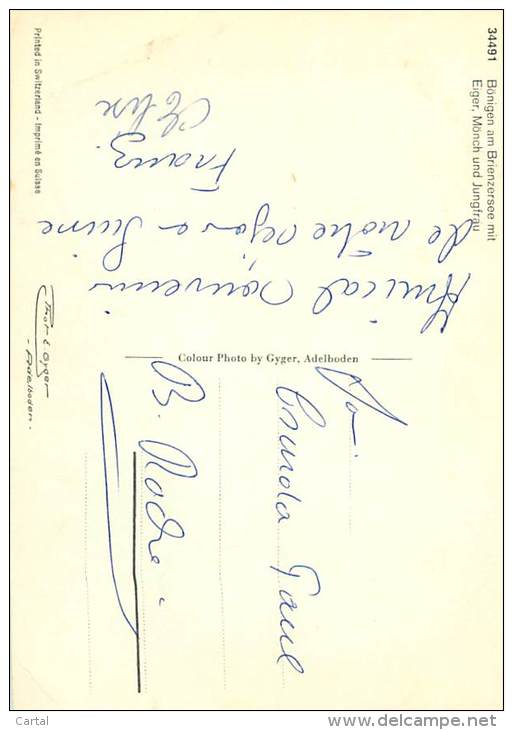 34491 Bönigen am Brienzersee mit
Eiger, Mönch und Jungfrau
Amical souvenir
de notre séjour
Suisse
Franz
Printed in Switzerland - Imprimé en Suisse
Colour Photo by Gyger, Adelboden
Phot. E. Gyger
- Adelboden -
Paul
B. Roche
Cartal
www.delcampe.net